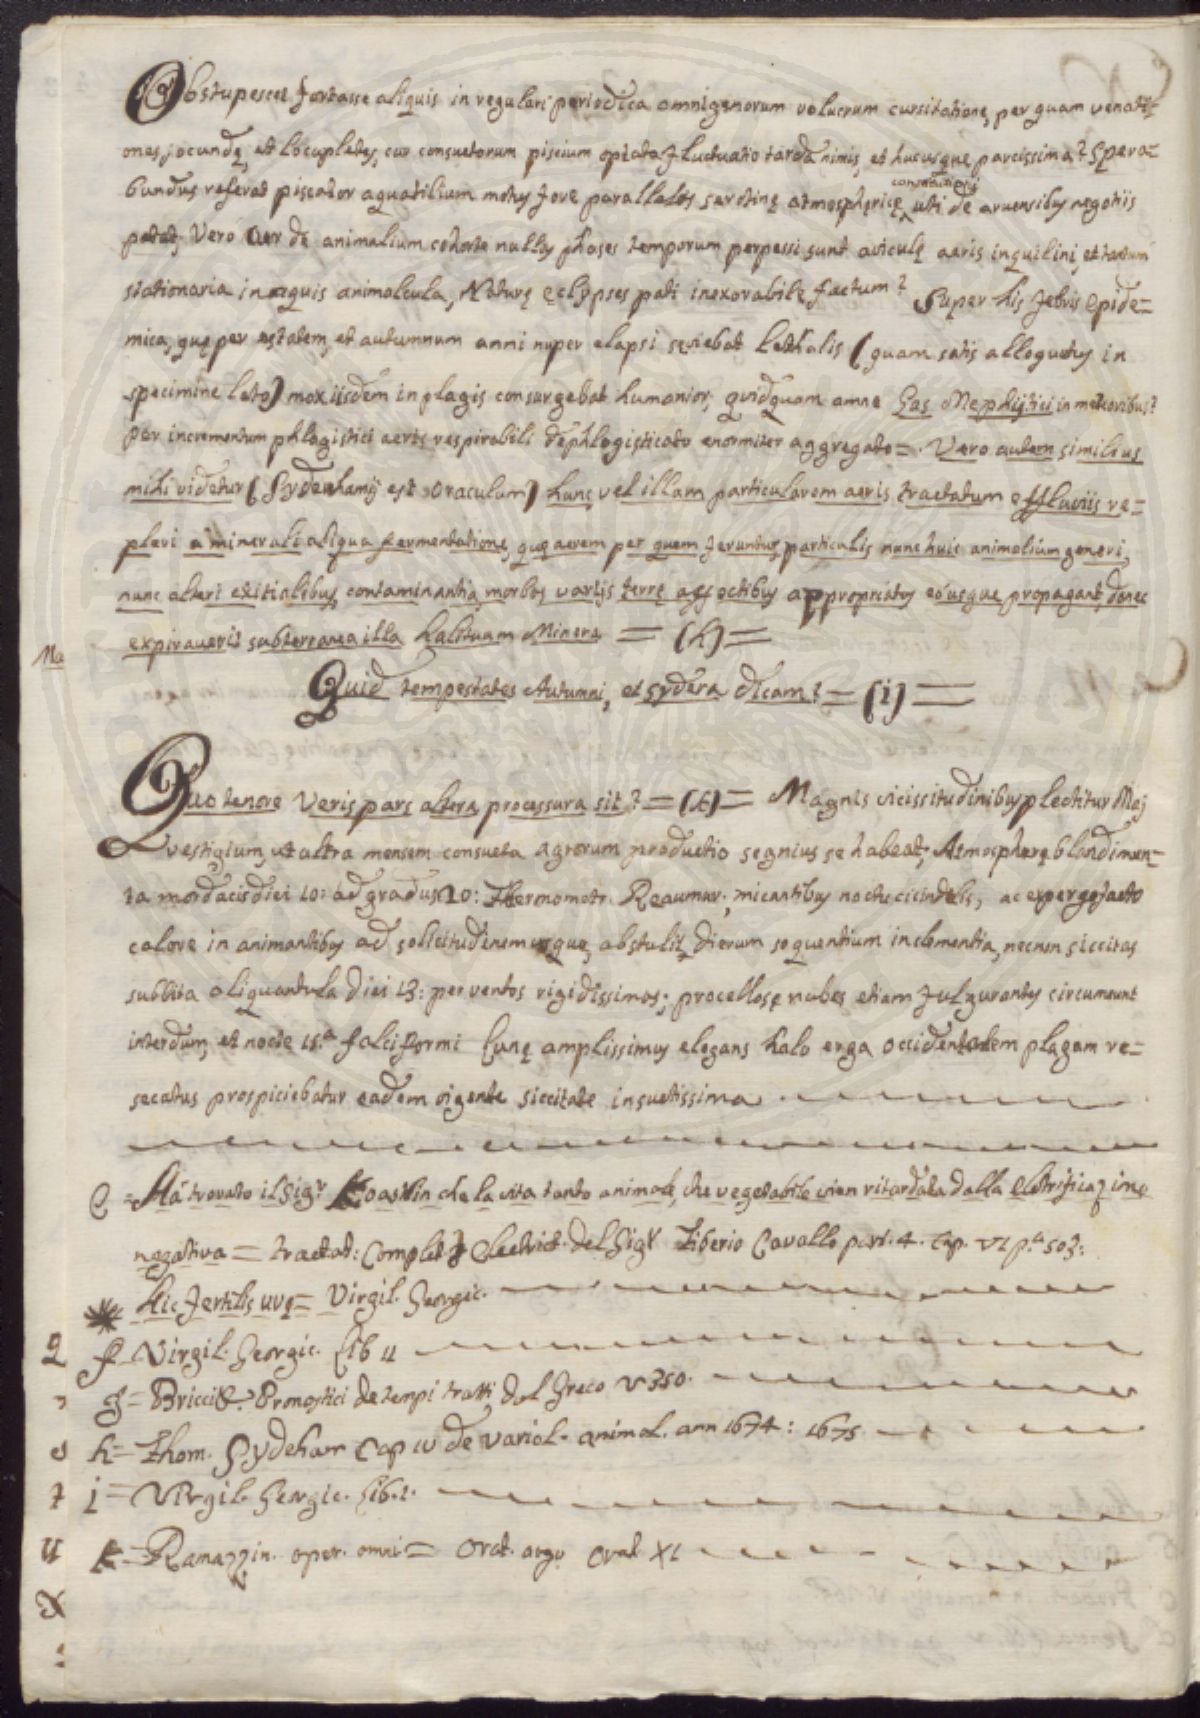 Obstupescet fortasse aliquis in regulari periodica omnigenorum volucrum cursitatione, per quam venati-
ones jocundę, et locupletes, cur consuetorum piscium optata fluctuatio tarda nimis, et hucusque parcissima? Spera-
bundus referat piscator aquatilium motus fore parallelos serotinę atmosphericę constitutioni, uti de arvensibus negotiis
patet. Vero cur de animalium cohorte nullas phases temporum perpessi sunt aviculę aeris inquilini, et tantum
stationaria in aquis animalcula, Naturę eclypses pati inexorabile factum? Super his febris epide-
mica, quę per ęstatem, et autumnum anni nuper elapsi sęviebat lethalis (quam satis alloquutus in
specimine lato) mox iisdem in plagis consurgebat humanior, quidquam amne Gas Mephijtici in meteoribus?
per incrementum phlogistici aeris respirabili dephlogisticato enormiter aggregato =. Vero autem similius
mihi videtur (Sydenhamij est oraculum) hunc vel illam particularem aeris tractatum effluviis re-
pleri a minerali aliqua fermentatione, quę aerem per quem feruntur, particulis nunc huic animalium generi,
nunc alteri exitialibus, contaminantia, morbos variis terrę affectibus appropriatos eousque propagant, donec
expiraverit subterranea illa halituum Minera = (h) =
Ma
Quid tempestates Autumni, et sydera dicam? = (i) =
Quo tenore Veris pars altera processura sit? = (k) = Magnis vicissitudinibus plectitur Maj
vestigium, ut altra mensem consueta agrorum productio segnius se habeat; Atmospherę blandimen-
ta mordacis diei 10: ad gradus 20: Thermometr. Reaumur., micantibus noctu cicindelis, ac expergefacto
calore in animantibus ad sollicitudinem usque, abstulit dierum sequentium inclementia, necnon siccitas
subbita aliquantula diei 13: per ventos rigidissimos; procellosę nubes etiam fulgurantes circumeunt
interdum, et nocte 15.a falciformi Lunę amplissimus elegans halo erga occidentalem plagam re-
secatus prospiciebatur eadem vigente siccitate insuetissima
e = Há trovato il Sig.r Koastlin che la vita tanto animale, che vegetabile vien ritardata dalla elettrificazione
negativa = trattat: Complet. d'Elettric. del Sig.r Tiberio Cavallo part. 4. Cap. VI p.a 503:
* Hic fertilis uvę = Virgil. Georgic.
f = Virgil. Georgic. Lib II
g = Bricci &. Pronostici de tempi tratti dal Greco V 350.
h = Thom. Sydeham Cap IV de Variol. animal. ann 1674: 1675
i = Virgil. Georgic. Lib. 1.
k = Ramazzin. oper. omni = Orat. argu Orat XI